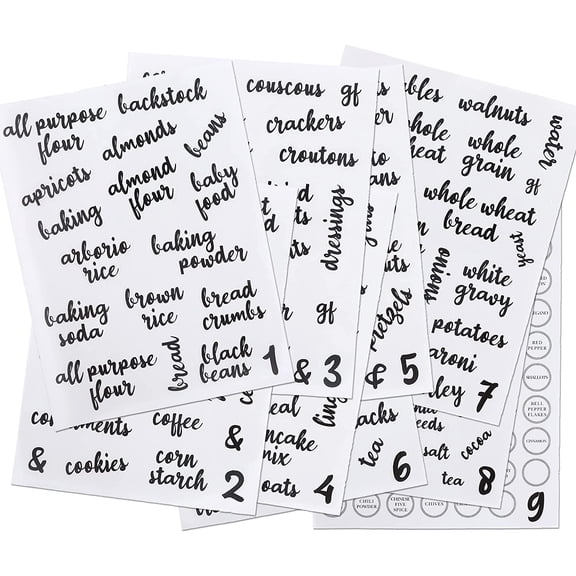 all purpose
flour
backstock
almonds
beans
apricots
almond
flour
baby
food
baking
arborio
rice
baking
powder
baking
soda
brown
rice
bread
crumbs
all purpose
flour
bread
black
beans
1
couscous
gf
crackers
croutons
dressings
gf
&
3
pretzels
&
5
walnuts
water
whole
grain
gf
whole wheat
bread
yeast
onions
white
gravy
potatoes
7
coffee
&
&
cookies
corn
starch
2
oats
4
tea
6
salt
cocoa
tea
8
RED
PEPPER
SHALLOTS
BELL
PEPPER
FLAKES
CINNAMON
CHILI
POWDER
CHINESE
FIVE
SPICE
CHIVES
9